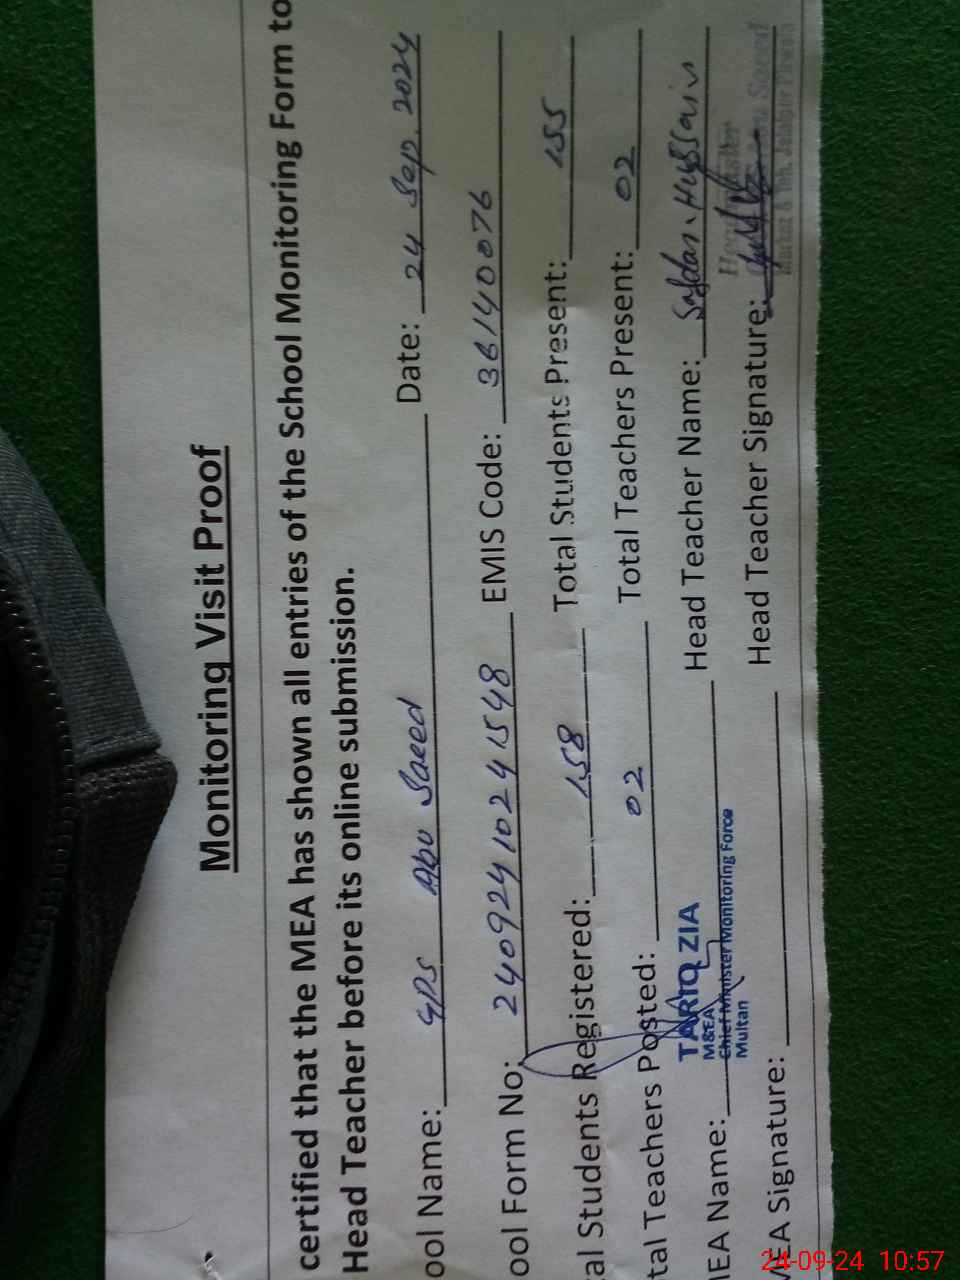 Monitoring Visit Proof
certified that the MEA has shown all entries of the School Monitoring Form to
Head Teacher before its online submission.
ool Name: GPS Abu Saeed Date: 24 Sep. 2024
ool Form No: 24092410241548 EMIS Code: 36140076
al Students Registered: 158 Total Students Present: 155
tal Teachers Posted: 02 Total Teachers Present: 02
MEA Name: TARIQ ZIA Head Teacher Name: Safdar Hussain
M&EA
Chief Minister Monitoring Force
Multan
MEA Signature: Head Teacher Signature:
Head Master
Saeed
Jalalpur Pirwala
24-09-24 10:57